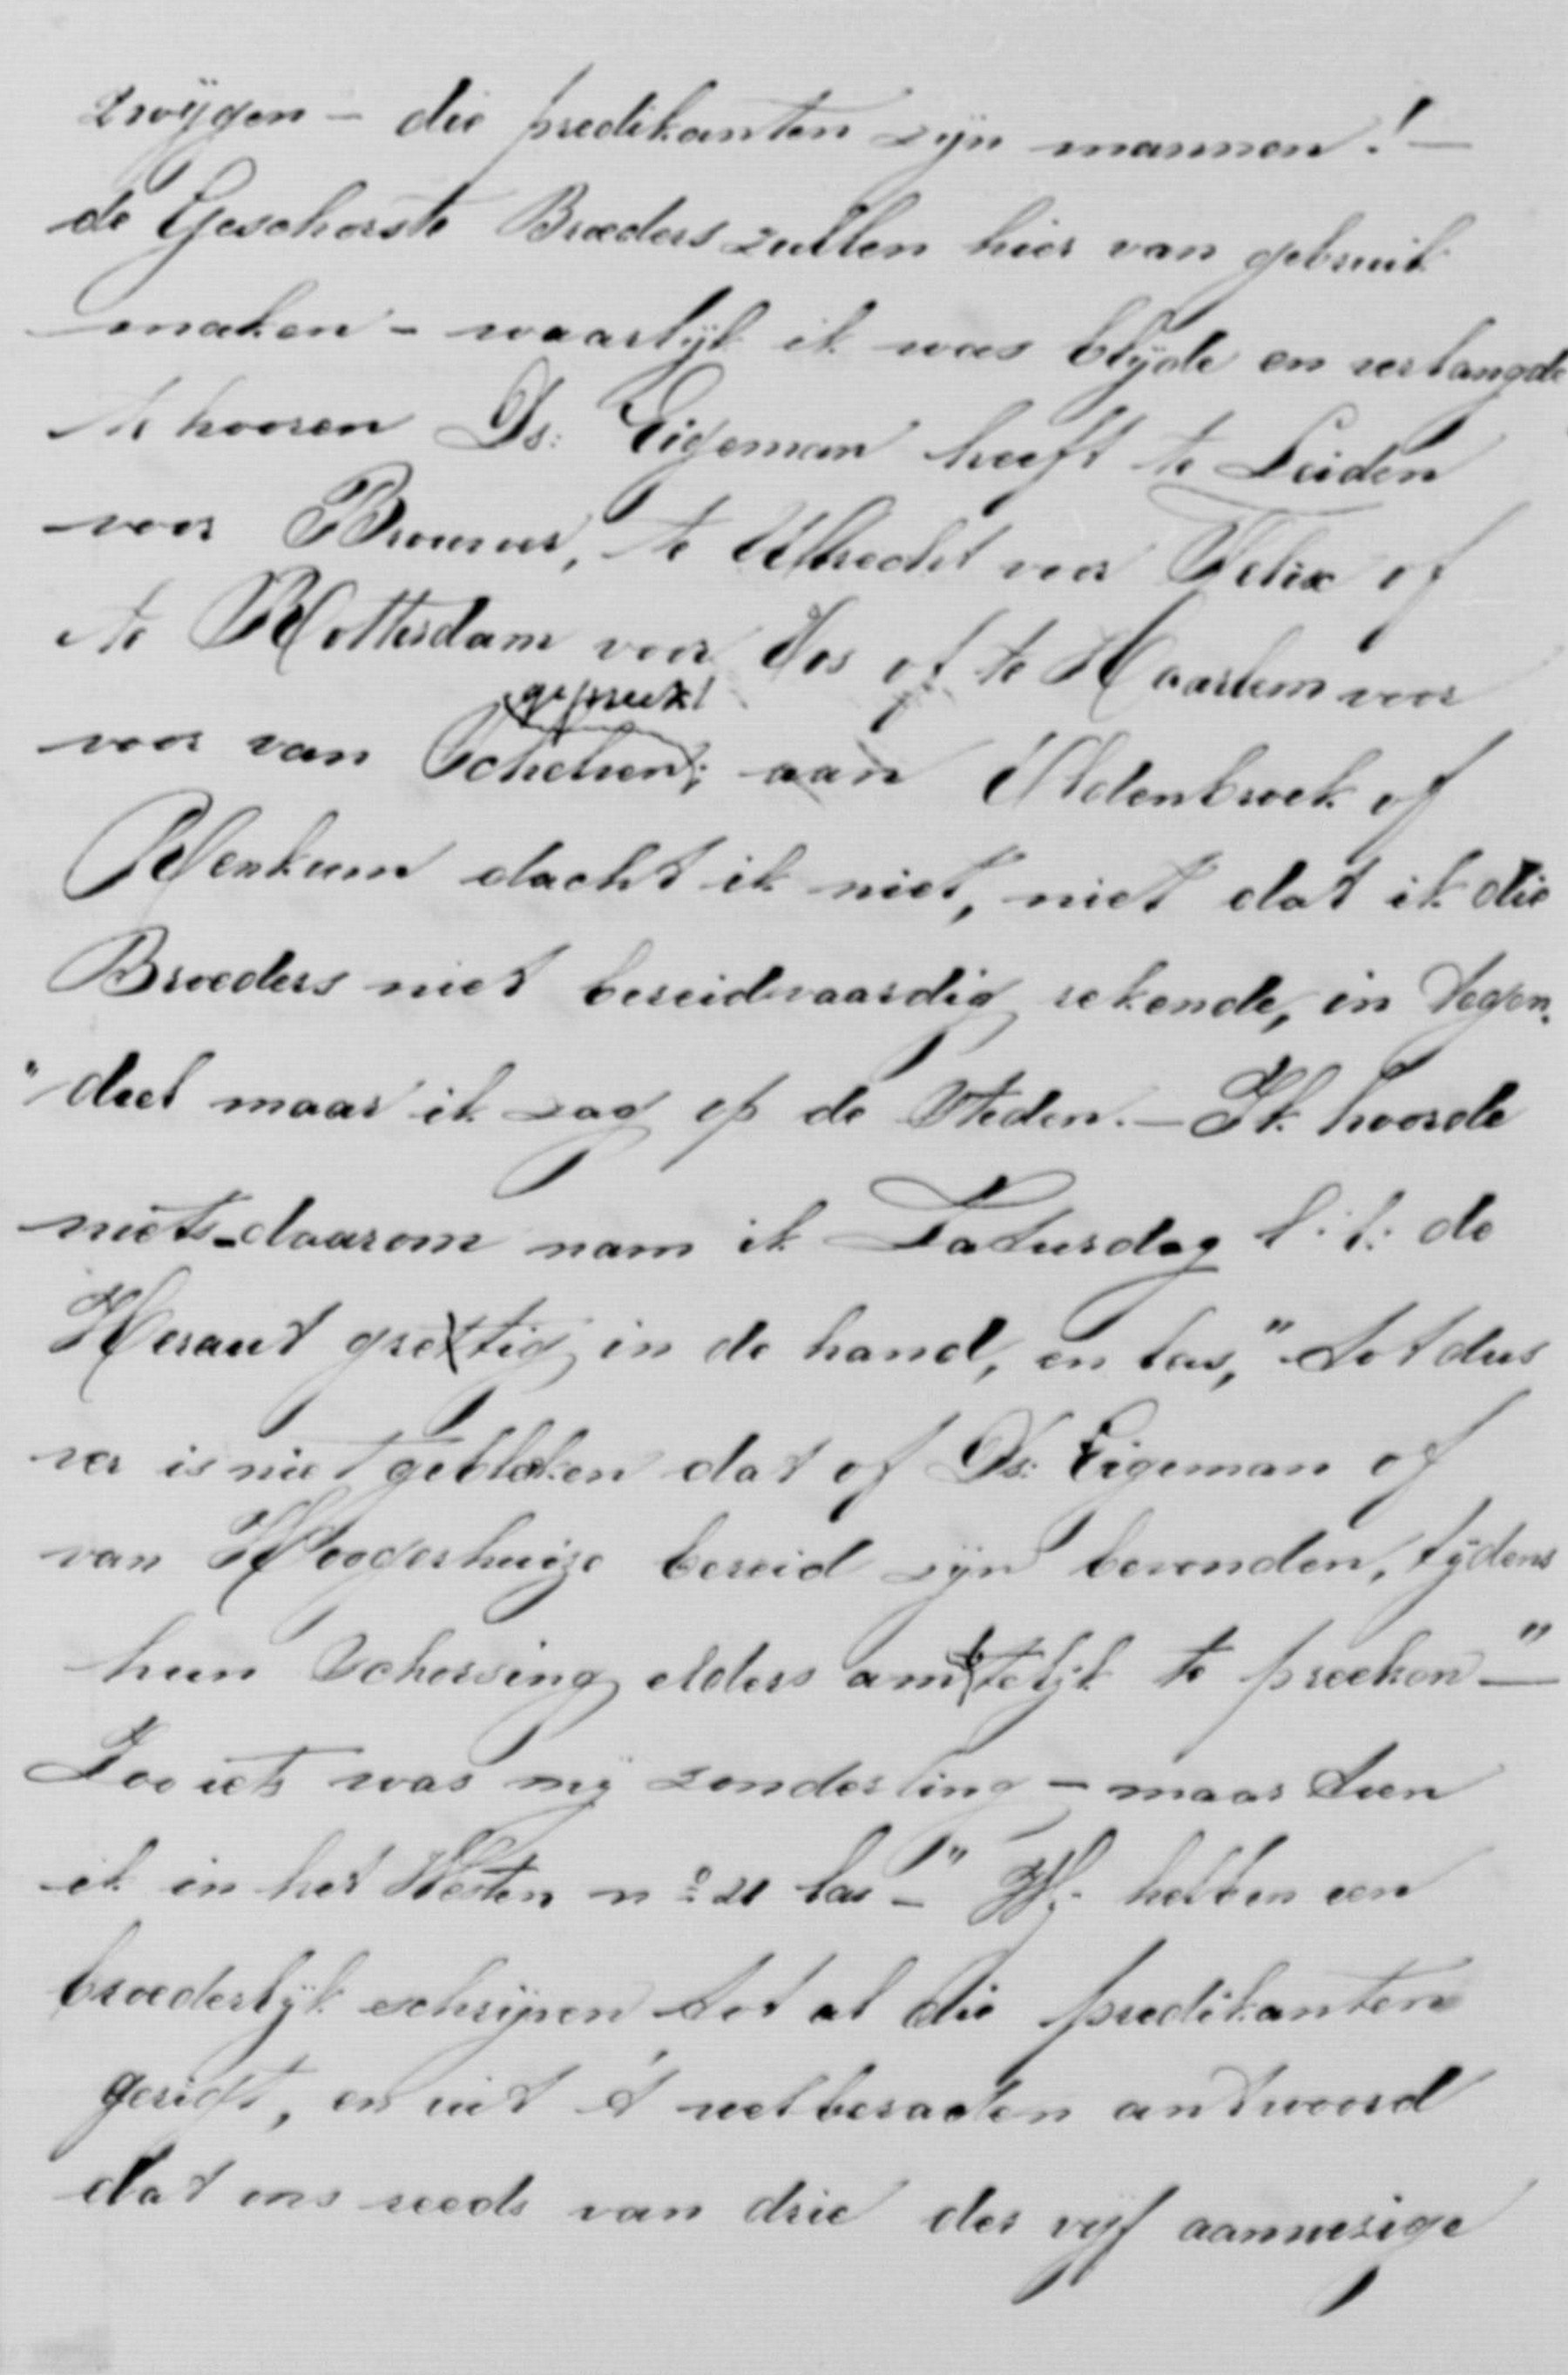 zwijgen – die predikanten zijn mannen! –
de Geschorste Broeders zullen hier van gebruik
maken – waarlijk ik was blijde en verlangde
te hooren Ds: Eigeman heeft te Leiden
voor Brouwer, te Utrecht voor Felix of
te Rotterdam voor Vos of te Haarlem voor
gepreekt
voor van Schelven; aan Oldenbroek of
Renkum dacht ik niet, niet dat ik die
Broeders niet bereidvaardig rekende, in tegen„
„deel maar ik zag op de Steden. – Ik hoorde
niets – daarom nam ik Saturdag l: l: de
Heraut gretig in de hand, en las, " tot dus
ver is niet gebleken dat of Ds: Eigeman of
van Hoogerhuize bereid zijn bevonden, tijdens
hun Schorsing elders ambtelijk te preeken – "
Zoo iets was mij zonderling – maar toen
ik in het Westen no 21 las – " Wij hebben een
broederlijk schrijven tot al die predikanten
gerigt, en uit 't welberaden antwoord
dat ons reeds van drie der vijf aanwezige